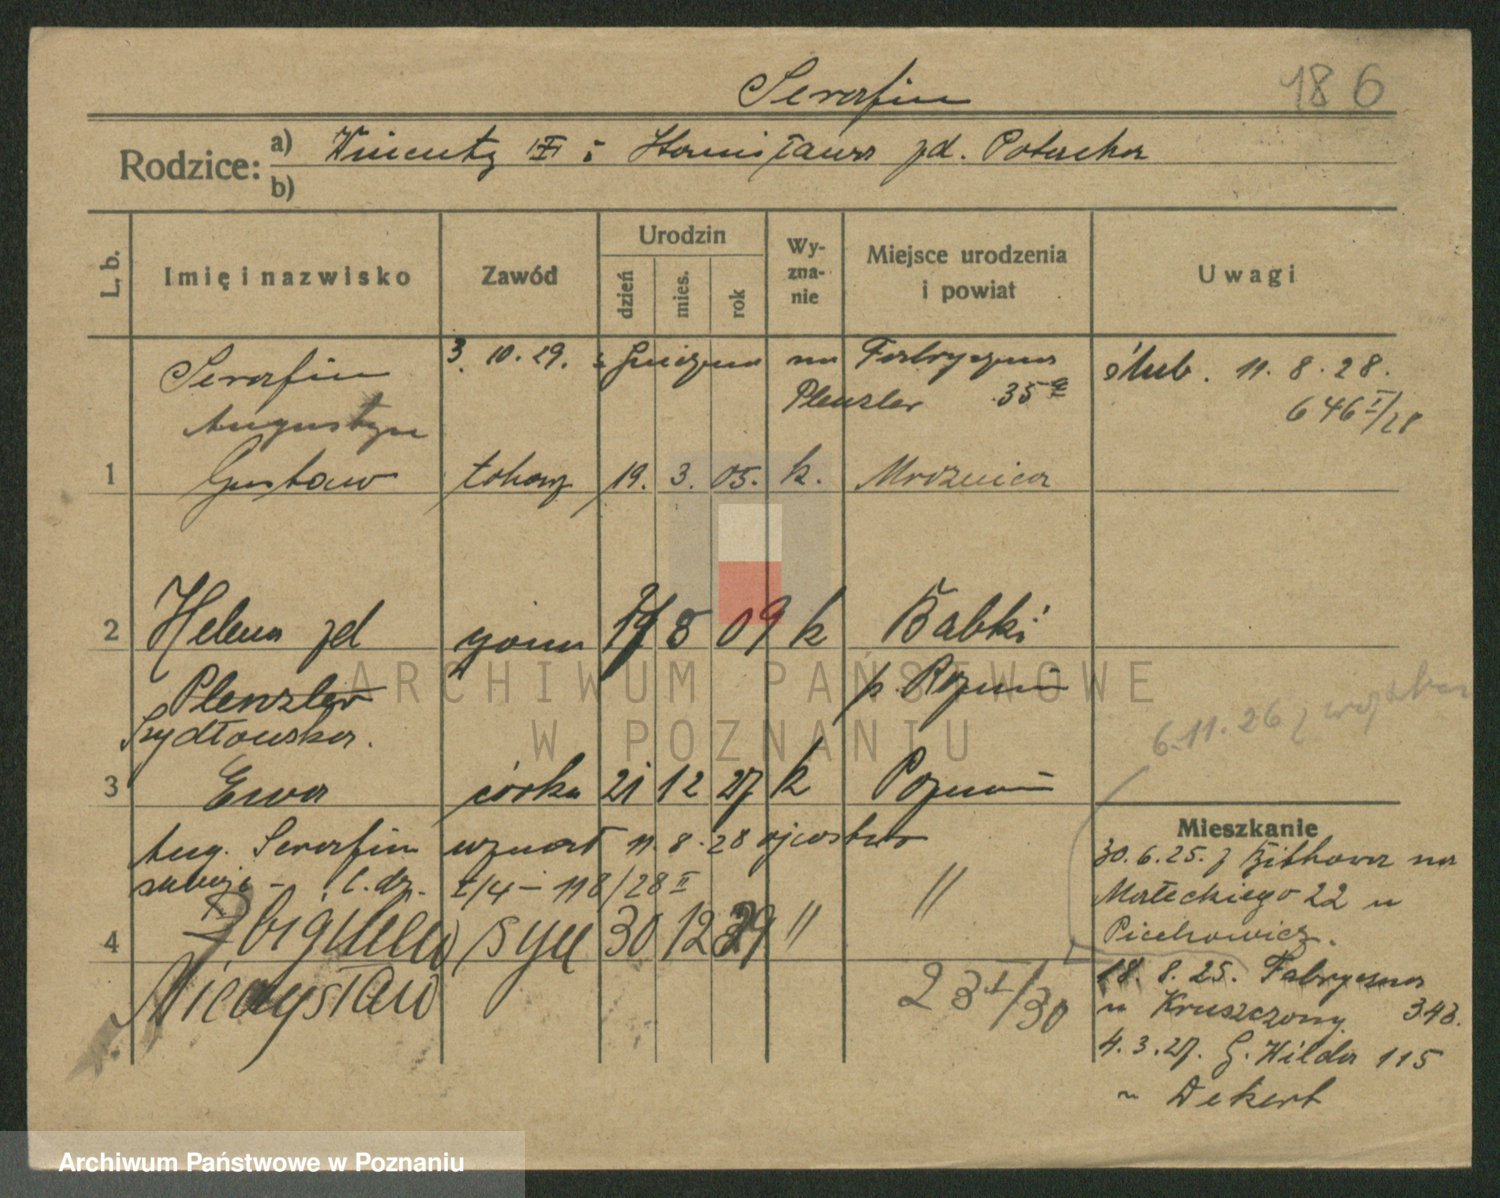 Serafin
186
Rodzice: a) Wincenty i Stanisława zd. Potocka
b)
L. b.
Imię i nazwisko
Zawód
Urodzin
dzień
mies.
rok
Wy-
zna-
nie
Miejsce urodzenia
i powiat
Uwagi
3. 10. 29. z Gniezna na Fabryczna
Plenzler 35a
ślub. 11. 8. 28.
646 I/28
Serafin
Augustyn
1 Gustaw tokarz 19. 3. 05. k. Mroznica
2 Helena zd żona 8 09 k Babki
Plenzler p. Poznań
Szydłowska.
6.11.26 z wojska
3 Ewa córka 21 12 27 k Poznań
Mieszkanie
Aug. Serafin uznał 11. 8. 28 ojcostwo
l. dz. I/4 - 118/28 II "
30. 6. 25. z na
Małeckiego 22 u
Piechowicz.
4 Zbigniew syn 30 12 29 "
Mieczysław
23 I/30
18. 8. 25. Fabryczna
u Kruszczony 343.
4. 3. 27. G. Wilda 115
u Dekert
ARCHIWUM PAŃSTWOWE
W POZNANIU
Archiwum Państwowe w Poznaniu